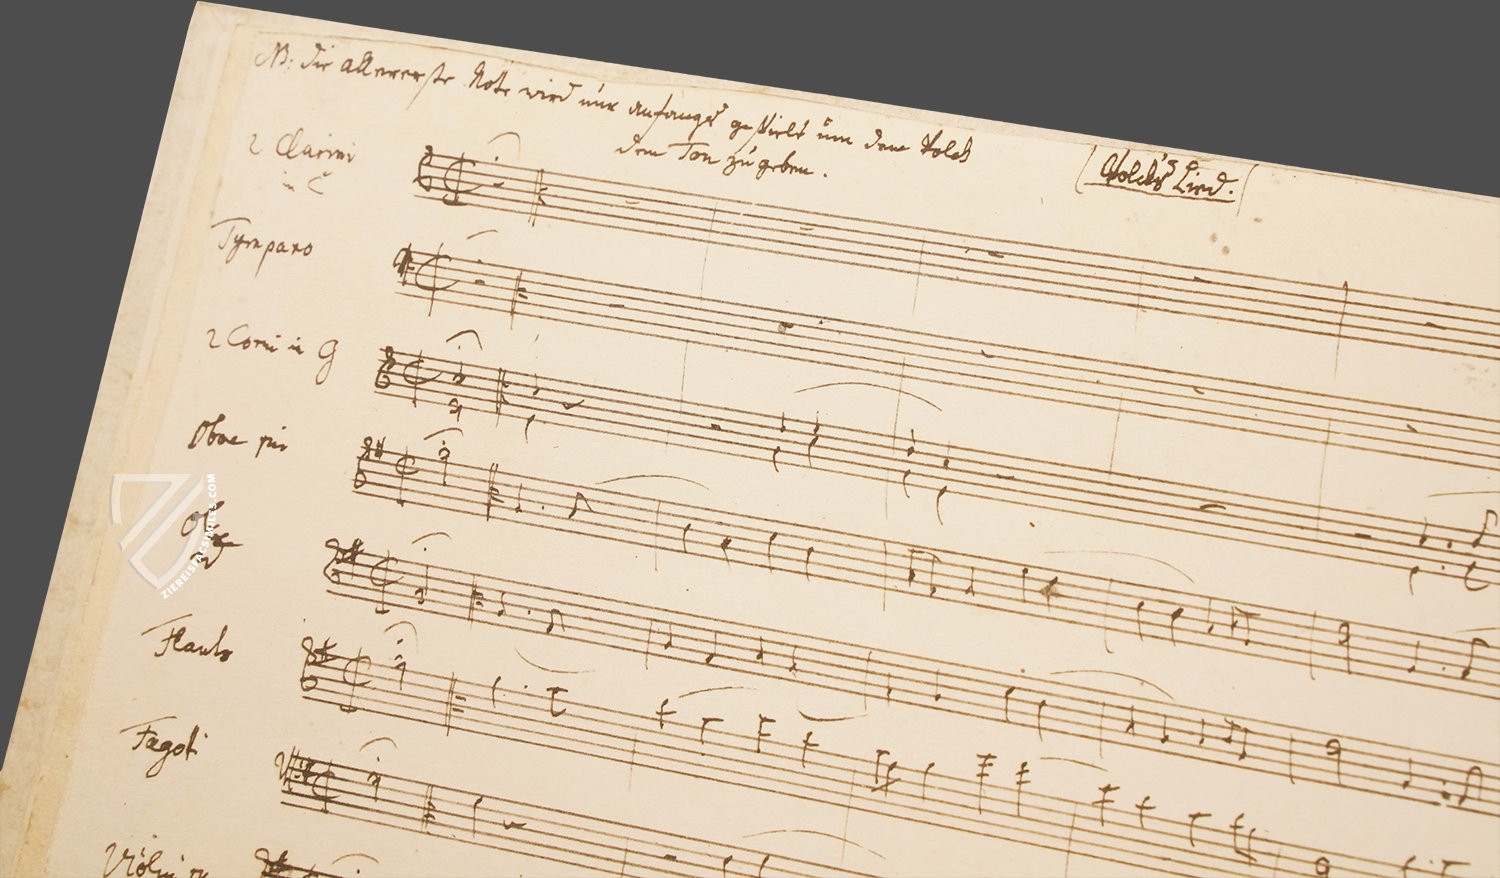 NB: die allererste Note wird nur anfangs gespielt um dem Volck
den Ton zu geben.
Volck's Lied.
2 Clarini
in C
Tympano
2 Corni in G
Oboe
Flauto
Fagoti
Violini
ZIEREISFACSIMILES.COM